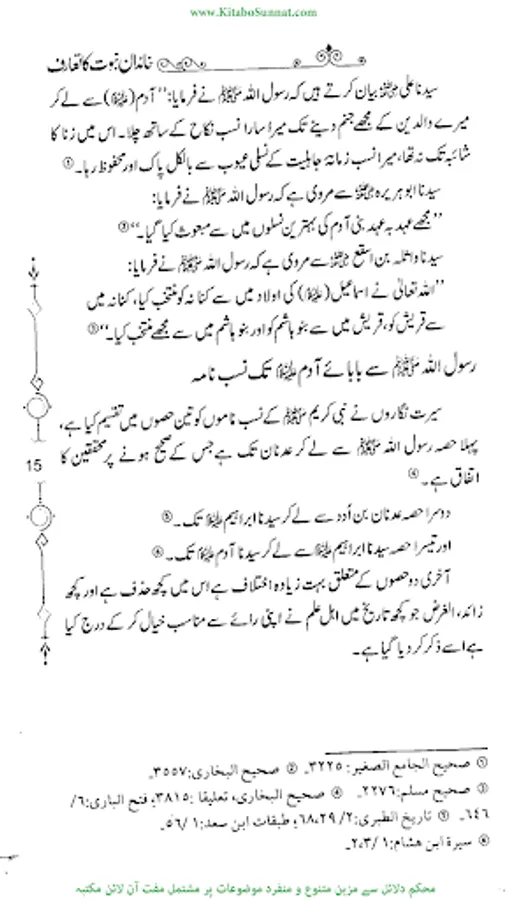 www.KitaboSunnat.com
خاندان نبوت کا تعارف
سیدنا علی رضی اللہ عنہ بیان کرتے ہیں کہ رسول اللہ ﷺ نے فرمایا: ’’آدم (علیہ السلام) سے لے کر
میرے والدین کے مجھے جنم دینے تک میرا سارا نسب نکاح کے ساتھ چلا۔ اس میں زنا کا
شائبہ تک نہ تھا، میرا نسب زمانۂ جاہلیت کے نسلی عیوب سے بالکل پاک اور محفوظ رہا۔ ①
سیدنا ابو ہریرہ رضی اللہ عنہ سے مروی ہے کہ رسول اللہ ﷺ نے فرمایا:
’’مجھے عہد بہ عہد بنی آدم کی بہترین نسلوں میں سے مبعوث کیا گیا۔‘‘ ②
سیدنا واثلہ بن اسقع رضی اللہ عنہ سے مروی ہے کہ رسول اللہ ﷺ نے فرمایا:
’’اللہ تعالیٰ نے اسماعیل (علیہ السلام) کی اولاد میں سے کنانہ کو منتخب کیا، کنانہ میں
سے قریش کو، قریش میں سے بنو ہاشم کو اور بنو ہاشم میں سے مجھے منتخب کیا۔‘‘ ③
رسول اللہ ﷺ سے بابائے آدم علیہ السلام تک نسب نامہ
سیرت نگاروں نے نبی کریم ﷺ کے نسب ناموں کو تین حصوں میں تقسیم کیا ہے،
پہلا حصہ رسول اللہ ﷺ سے لے کر عدنان تک ہے جس کے صحیح ہونے پر محققین کا
اتفاق ہے۔ ④
15
دوسرا حصہ عدنان بن اُدد سے لے کر سیدنا ابراہیم علیہ السلام تک۔ ⑤
اور تیسرا حصہ سیدنا ابراہیم علیہ السلام سے لے کر سیدنا آدم علیہ السلام تک۔ ⑥
آخری دو حصوں کے متعلق بہت زیادہ اختلاف ہے اس میں کچھ حذف ہے اور کچھ
زائد، الغرض جو کچھ تاریخ میں اہل علم نے اپنی رائے سے مناسب خیال کر کے درج کیا
ہے اسے ذکر کر دیا گیا ہے۔
① صحیح الجامع الصغیر: ۳۲۲۵۔ ② صحیح البخاری: ۳۵۵۷۔
③ صحیح مسلم: ۲۲۷۶۔ ④ صحیح البخاری، تعلیقا: ۳۸۱۵، فتح الباری: ۶/
۶۴۶۔ ⑤ تاریخ الطبری: ۲/ ۶۸،۲۹؛ طبقات ابن سعد: ۱/ ۵۶۔
⑥ سیرۃ ابن ھشام: ۱/ ۲،۳۔
محکم دلائل سے مزین متنوع و منفرد موضوعات پر مشتمل مفت آن لائن مکتبہ